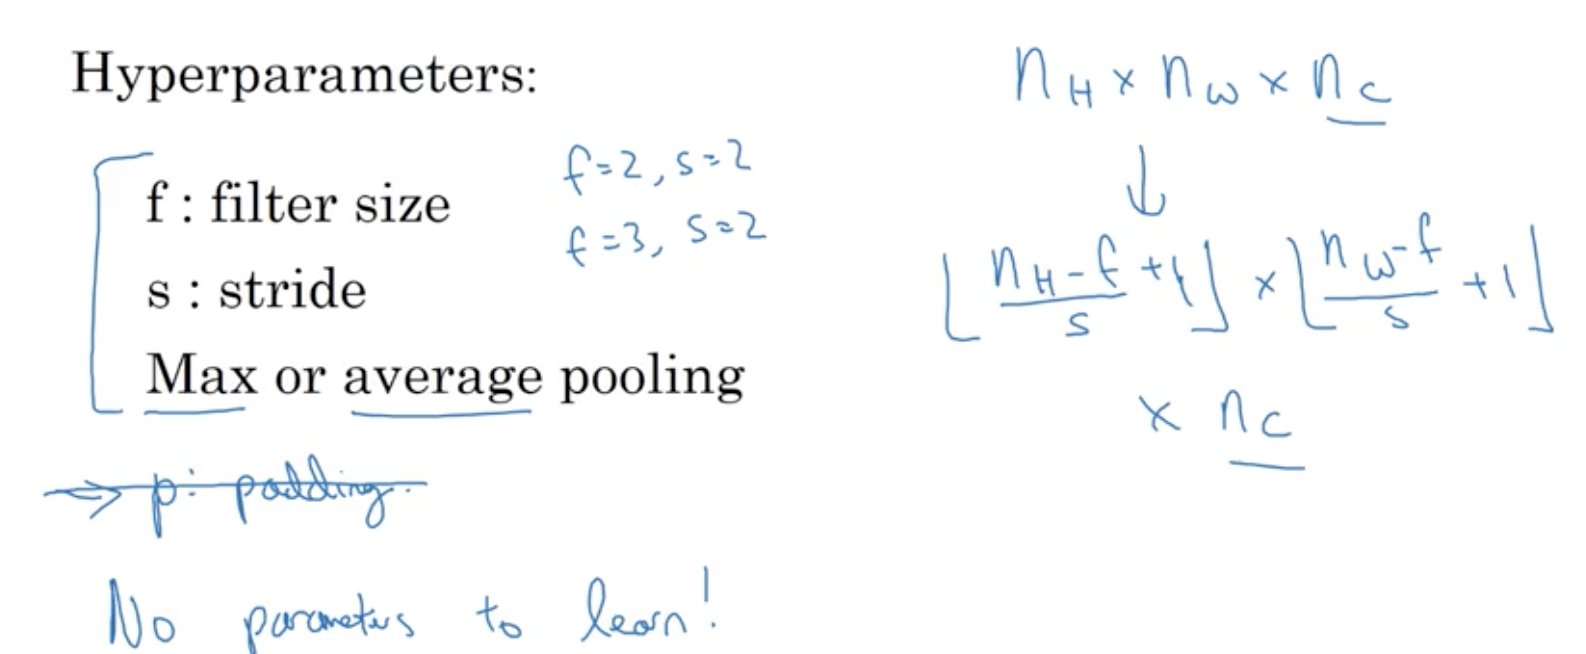 Hyperparameters:
f : filter size
s : stride
Max or average pooling
f=2, s=2
f=3, s=2
⇒ p: padding.
No parameters to learn!
n_H × n_W × n_C
↓
⌊(n_H - f)/s + 1⌋ × ⌊(n_W - f)/s + 1⌋
× n_C